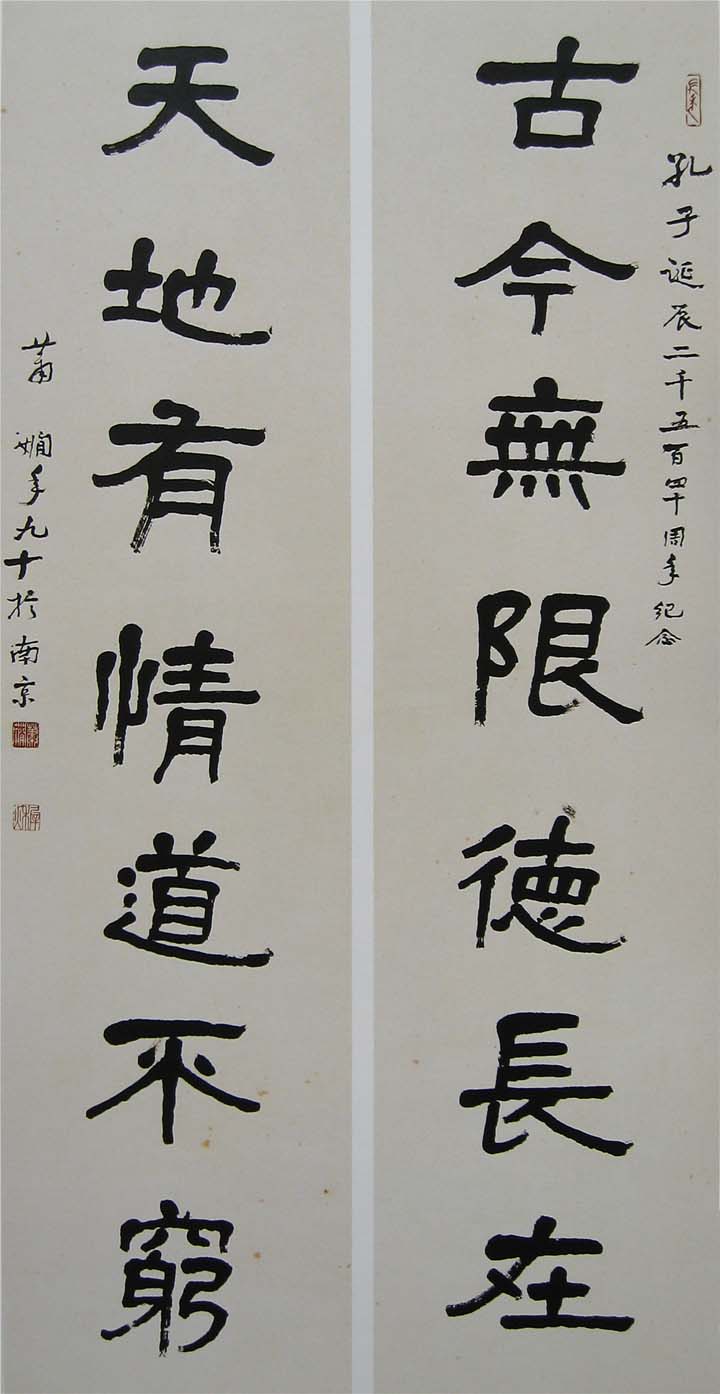 孔子誕辰二千五百四十周年紀念
古今無限德長在
天地有情道不窮
蕭嫻年九十於南京